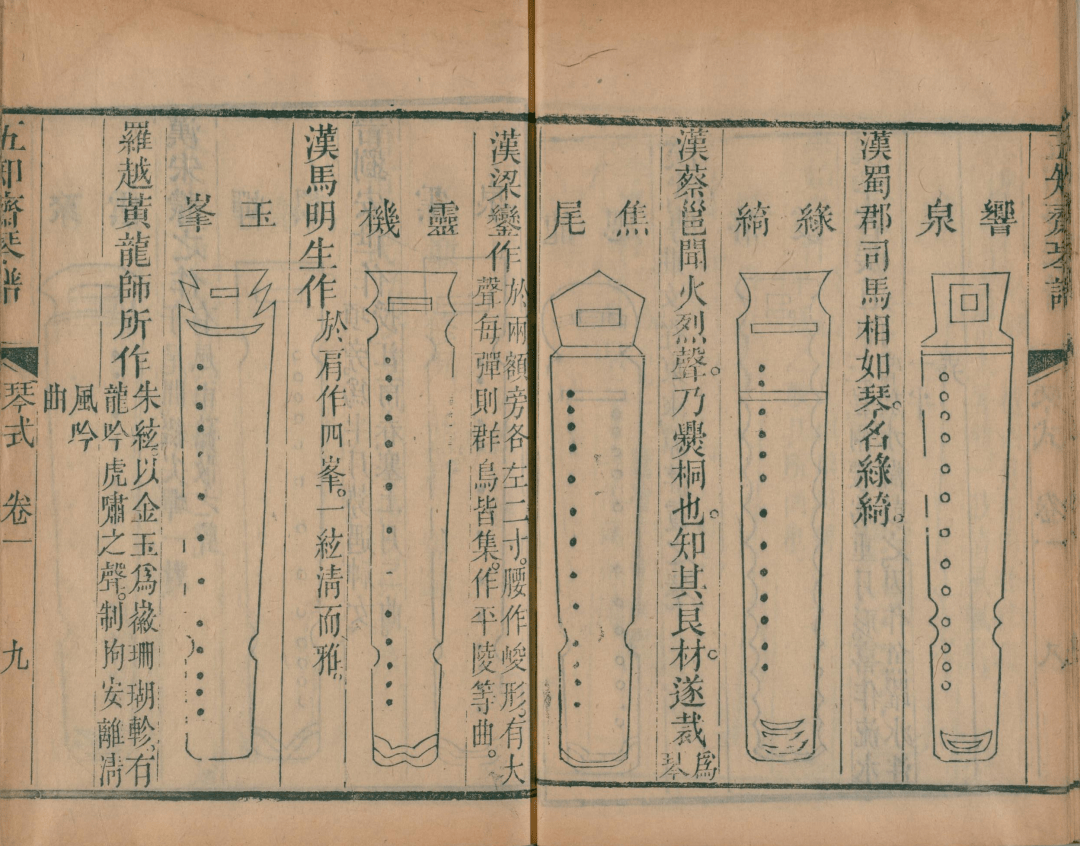 響泉
漢蜀郡司馬相如琴名綠綺。
綠綺
漢蔡邕聞火烈聲。乃爨桐也。知其良材。遂裁為琴
焦尾
漢梁鑾作於兩額旁各左二寸。腰作峻形。有大
聲每彈則群鳥皆集。作平陵等曲。
靈機
漢馬明生作於肩作四峯。一絃清而雅。
玉峯
羅越黃龍師所作朱絃。以金玉為徽珊瑚軫。有
龍吟虎嘯之聲。制拘安離清
風吟
曲
琴式 卷一 九